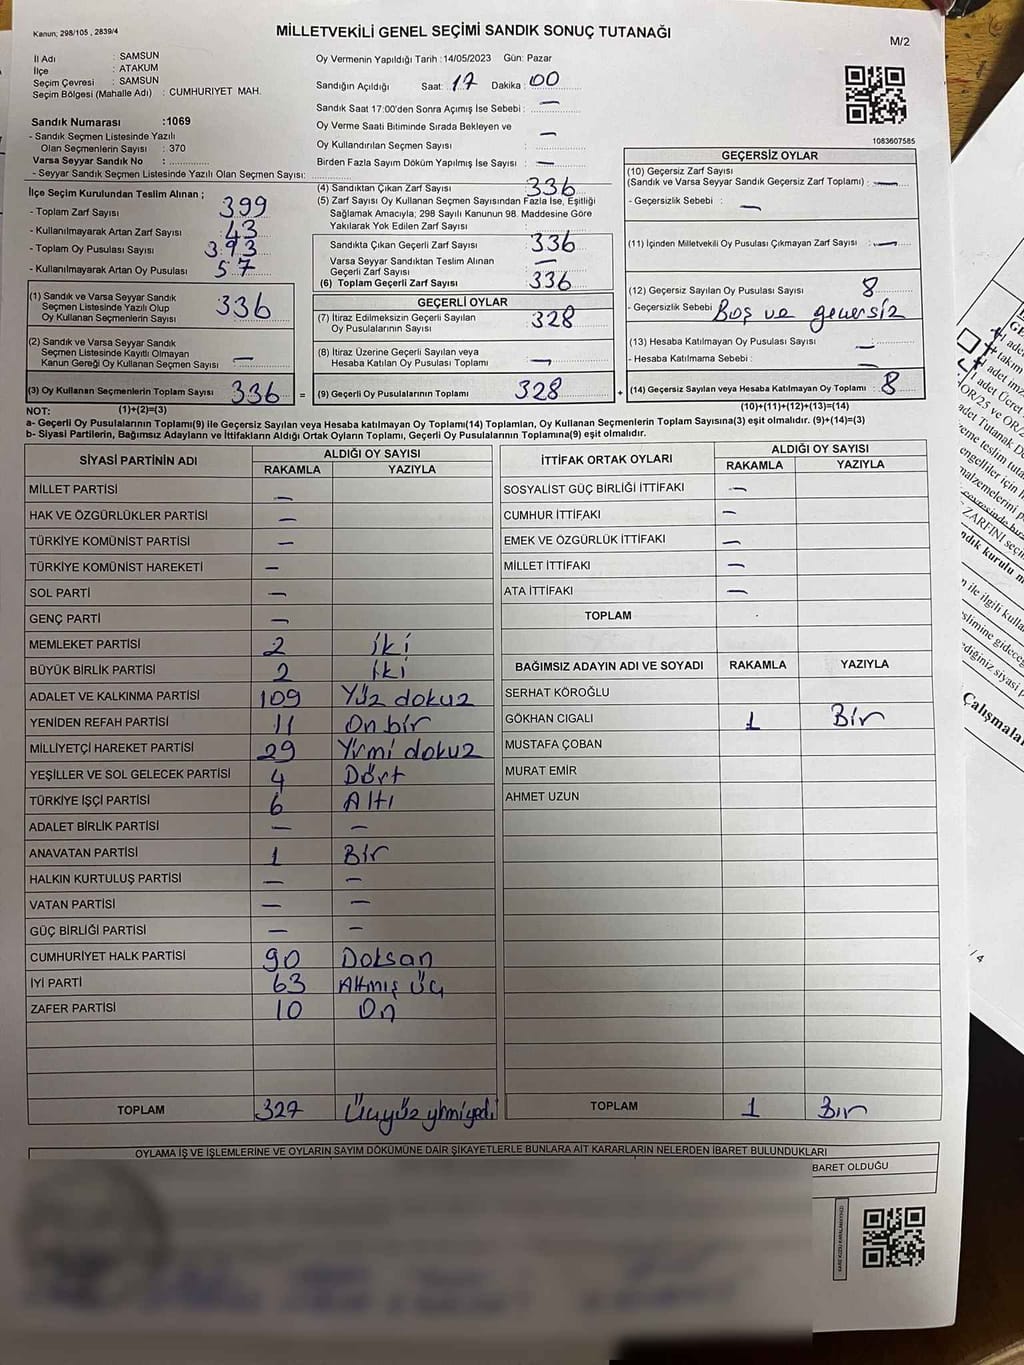 Kanun; 298/105 , 2839/4
MİLLETVEKİLİ GENEL SEÇİMİ SANDIK SONUÇ TUTANAĞI
M/2
İl Adı : SAMSUN
İlçe : ATAKUM
Seçim Çevresi : SAMSUN
Seçim Bölgesi (Mahalle Adı) : CUMHURIYET MAH.
Sandık Numarası :1069
- Sandık Seçmen Listesinde Yazılı
Olan Seçmenlerin Sayısı : 370
Varsa Seyyar Sandık No : ..............
- Seyyar Sandık Seçmen Listesinde Yazılı Olan Seçmen Sayısı: ..............
Oy Vermenin Yapıldığı Tarih :14/05/2023 Gün: Pazar
Sandığın Açıldığı Saat: 17 Dakika : 00
Sandık Saat 17:00'den Sonra Açımış İse Sebebi : —
Oy Verme Saati Bitiminde Sırada Bekleyen ve
Oy Kullandırılan Seçmen Sayısı : —
Birden Fazla Sayım Döküm Yapılmış İse Sayısı : —
1083607585
İlçe Seçim Kurulundan Teslim Alınan ;
- Toplam Zarf Sayısı 399
- Kullanılmayarak Artan Zarf Sayısı 43
- Toplam Oy Pusulası Sayısı 393
- Kullanılmayarak Artan Oy Pusulası 57
(1) Sandık ve Varsa Seyyar Sandık
Seçmen Listesinde Yazılı Olup
Oy Kullanan Seçmenlerin Sayısı 336
(2) Sandık ve Varsa Seyyar Sandık
Seçmen Listesinde Kayıtlı Olmayan
Kanun Gereği Oy Kullanan Seçmen Sayısı —
(3) Oy Kullanan Seçmenlerin Toplam Sayısı 336 =
(4) Sandıktan Çıkan Zarf Sayısı 336
(5) Zarf Sayısı Oy Kullanan Seçmen Sayısından Fazla İse, Eşitliği
Sağlamak Amacıyla; 298 Sayılı Kanunun 98. Maddesine Göre
Yakılarak Yok Edilen Zarf Sayısı :
Sandıkta Çıkan Geçerli Zarf Sayısı 336
Varsa Seyyar Sandıktan Teslim Alınan
Geçerli Zarf Sayısı —
(6) Toplam Geçerli Zarf Sayısı 336
GEÇERLİ OYLAR
(7) İtiraz Edilmeksizin Geçerli Sayılan
Oy Pusulalarının Sayısı 328
(8) İtiraz Üzerine Geçerli Sayılan veya
Hesaba Katılan Oy Pusulası Toplamı —
(9) Geçerli Oy Pusulalarının Toplamı 328 +
GEÇERSİZ OYLAR
(10) Geçersiz Zarf Sayısı
(Sandık ve Varsa Seyyar Sandık Geçersiz Zarf Toplamı) : —
- Geçersizlik Sebebi : —
(11) İçinden Milletvekili Oy Pusulası Çıkmayan Zarf Sayısı : —
(12) Geçersiz Sayılan Oy Pusulası Sayısı 8
- Geçersizlik Sebebi : Boş ve geçersiz
(13) Hesaba Katılmayan Oy Pusulası Sayısı : —
- Hesaba Katılmama Sebebi : —
(14) Geçersiz Sayılan veya Hesaba Katılmayan Oy Toplamı : 8
NOT: (1)+(2)=(3)
(10)+(11)+(12)+(13)=(14)
a- Geçerli Oy Pusulalarının Toplamı(9) ile Geçersiz Sayılan veya Hesaba katılmayan Oy Toplamı(14) Toplamları, Oy Kullanan Seçmenlerin Toplam Sayısına(3) eşit olmalıdır. (9)+(14)=(3)
b- Siyasi Partilerin, Bağımsız Adayların ve İttifakların Aldığı Ortak Oyların Toplamı, Geçerli Oy Pusulalarının Toplamına(9) eşit olmalıdır.
SİYASİ PARTİNİN ADI
ALDIĞI OY SAYISI
RAKAMLA YAZIYLA
MİLLET PARTİSİ —
HAK VE ÖZGÜRLÜKLER PARTİSİ —
TÜRKİYE KOMÜNİST PARTİSİ —
TÜRKİYE KOMÜNİST HAREKETİ —
SOL PARTİ —
GENÇ PARTİ —
MEMLEKET PARTİSİ 2 iki
BÜYÜK BİRLİK PARTİSİ 2 iki
ADALET VE KALKINMA PARTİSİ 109 Yüz dokuz
YENİDEN REFAH PARTİSİ 11 On bir
MİLLİYETÇİ HAREKET PARTİSİ 29 Yirmi dokuz
YEŞİLLER VE SOL GELECEK PARTİSİ 4 Dört
TÜRKİYE İŞÇİ PARTİSİ 6 Altı
ADALET BİRLİK PARTİSİ — —
ANAVATAN PARTİSİ 1 Bir
HALKIN KURTULUŞ PARTİSİ — —
VATAN PARTİSİ — —
GÜÇ BİRLİĞİ PARTİSİ — —
CUMHURİYET HALK PARTİSİ 90 Doksan
İYİ PARTİ 63 Altmış üç
ZAFER PARTİSİ 10 On
TOPLAM 327 Üçyüz yirmiyedi
İTTİFAK ORTAK OYLARI
ALDIĞI OY SAYISI
RAKAMLA YAZIYLA
SOSYALIST GÜÇ BİRLİĞİ İTTİFAKI —
CUMHUR İTTİFAKI —
EMEK VE ÖZGÜRLÜK İTTİFAKI —
MİLLET İTTİFAKI —
ATA İTTİFAKI —
TOPLAM
BAĞIMSIZ ADAYIN ADI VE SOYADI RAKAMLA YAZIYLA
SERHAT KÖROĞLU
GÖKHAN CIGALI 1 Bir
MUSTAFA ÇOBAN
MURAT EMİR
AHMET UZUN
TOPLAM 1 Bir
OYLAMA İŞ VE İŞLEMLERİNE VE OYLARIN SAYIM DÖKÜMÜNE DAİR ŞİKAYETLERLE BUNLARA AİT KARARLARIN NELERDEN İBARET BULUNDUKLARI
BARET OLDUĞU
KARE KODU KARALAMAYINIZ!